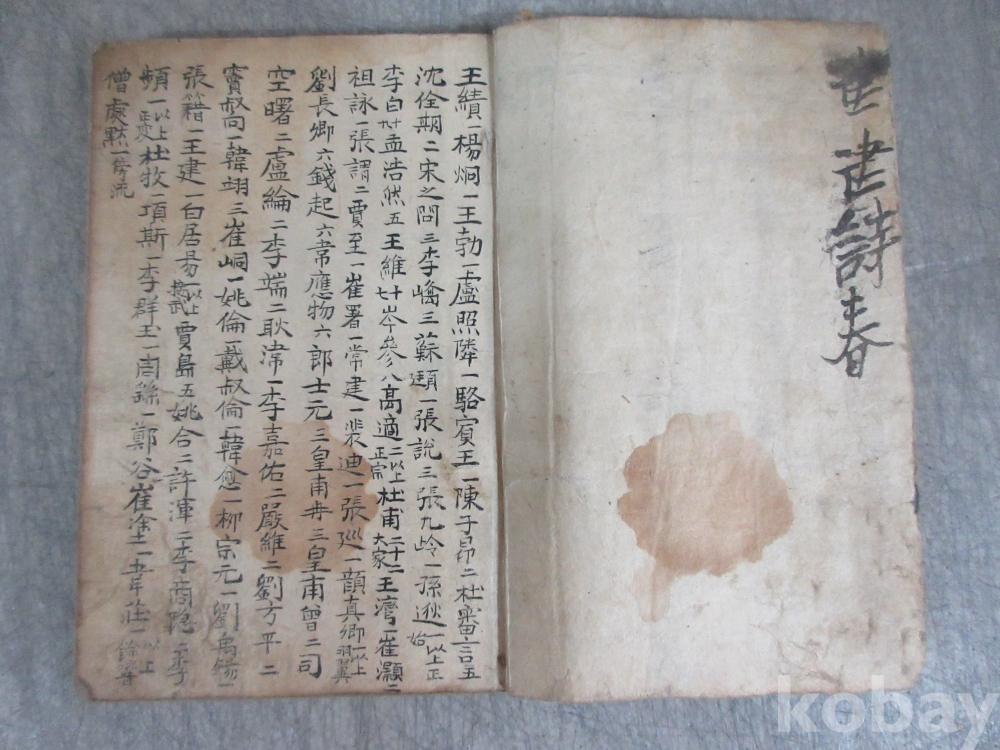 世世詩春
王績一楊炯一王勃一盧照隣一駱賓王一陳子昂二杜審言五
沈佺期二宋之問三李嶠三蘇頲一張說三張九岭一孫逖一以上正始
李白九十孟浩然五王維七十岑參八高適二以上正宗杜甫二十二大家王灣一崔灝二
祖詠一張謂二賈至一崔署一常建一裴迪一張巡一顔真卿一以上羽翼
劉長卿六錢起六韋應物六郎士元三皇甫冉三皇甫曾二司
空曙二盧綸二李端二耿湋一李嘉佑二嚴維二劉方平二
竇叔向一韓翊三崔峒一姚倫一戴叔倫一韓愈一柳宗元一劉禹錫一
張籍一王建一白居易一以上接武賈島五姚合二許渾二李商隐二李
頻一以上正变杜牧一項斯一李群玉一周繇一鄭谷崔塗一韋莊一以上餘響
僧處默一傍流
kobay